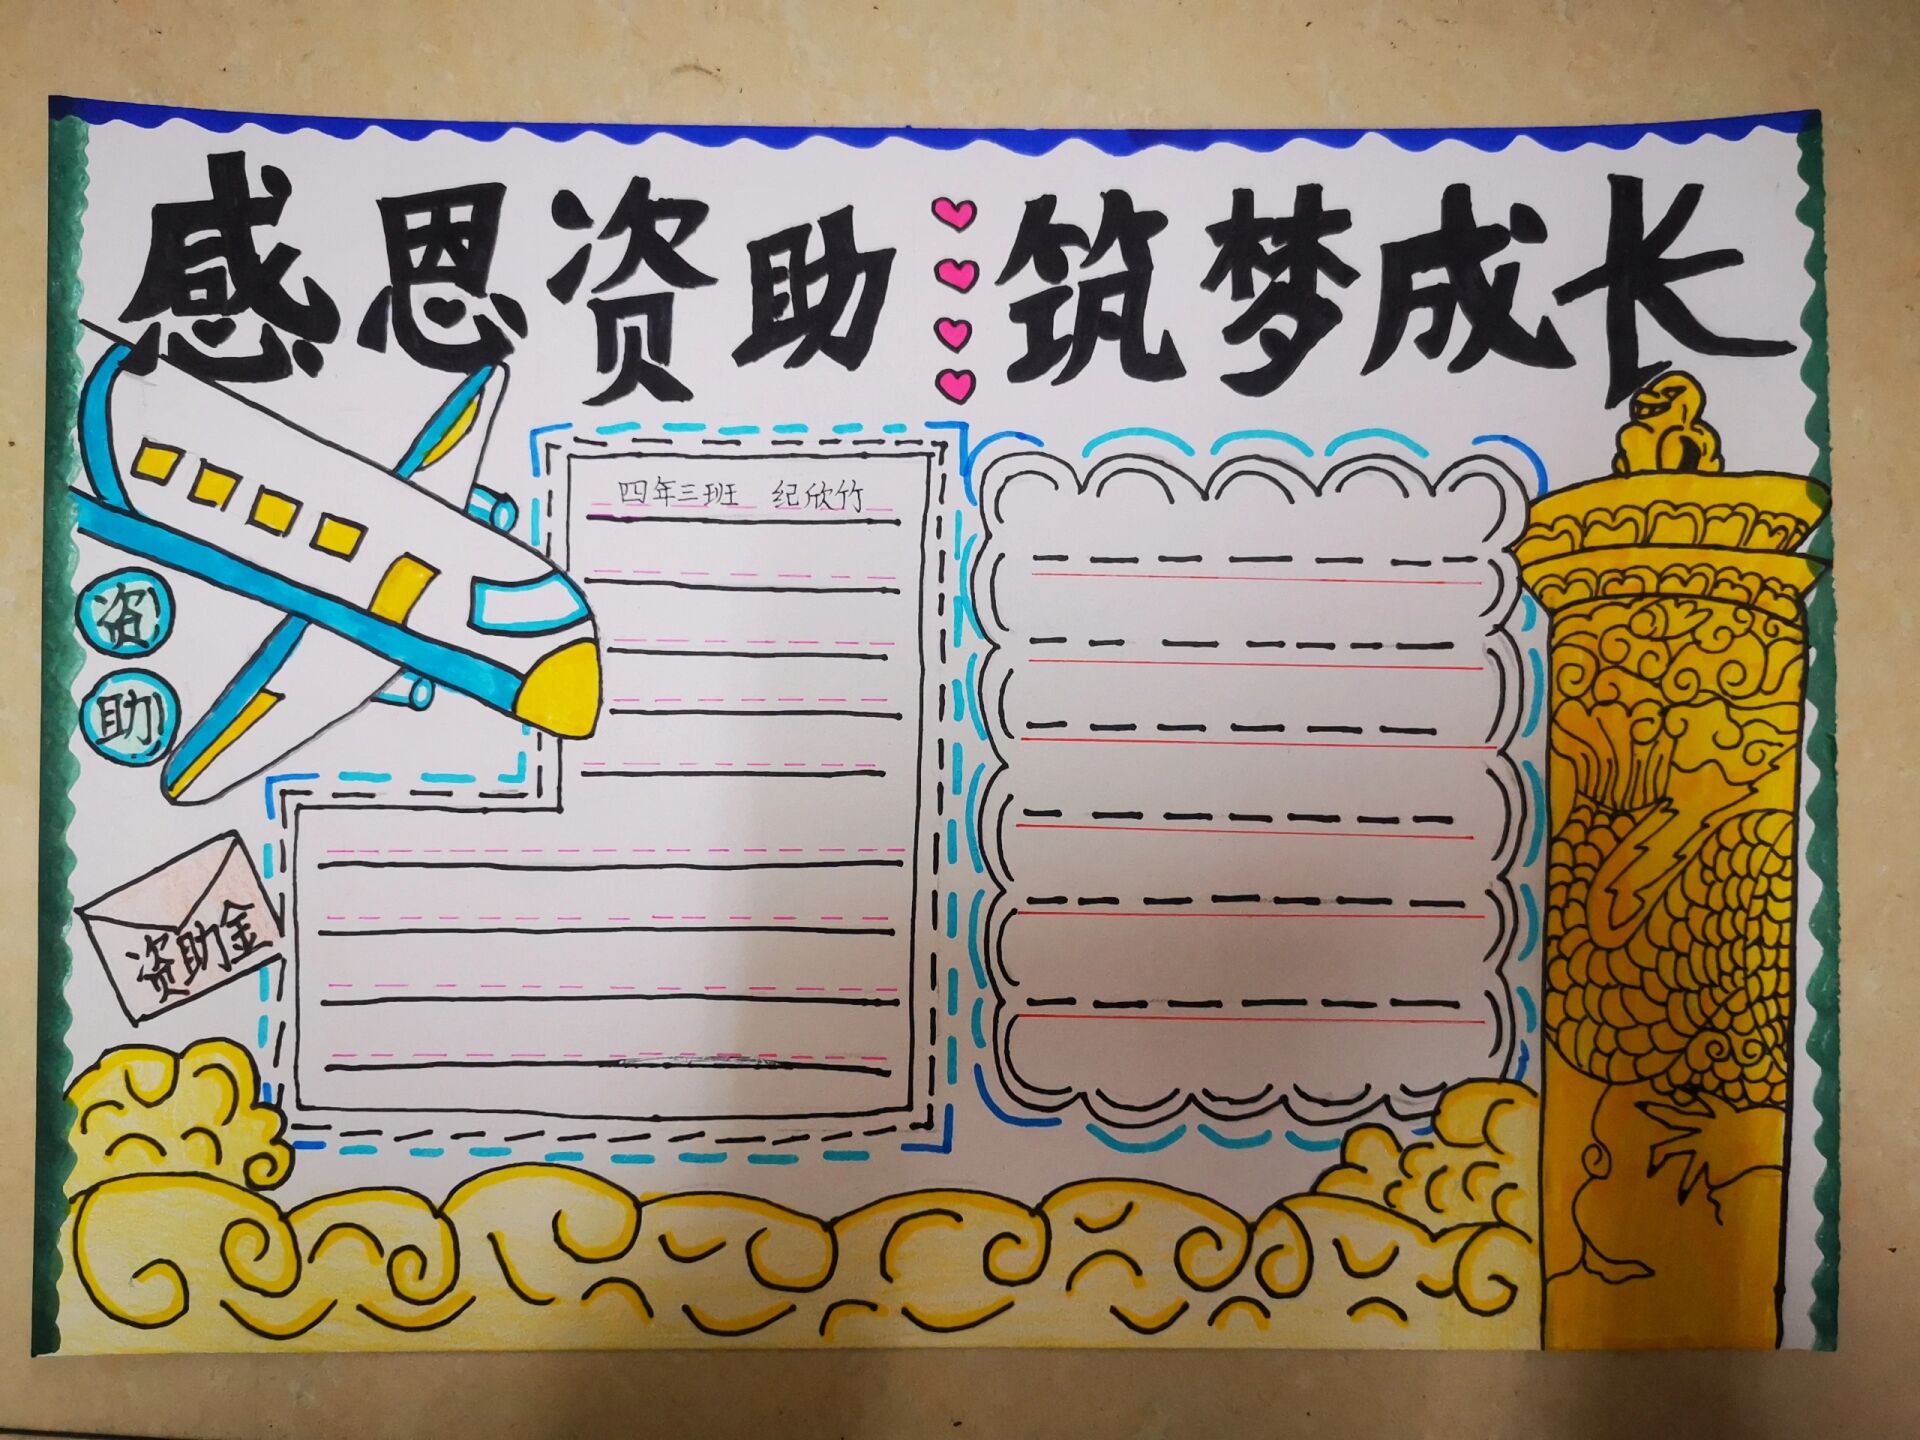 感恩资助 筑梦成长
四年三班 纪欣竹
资
助
资助金